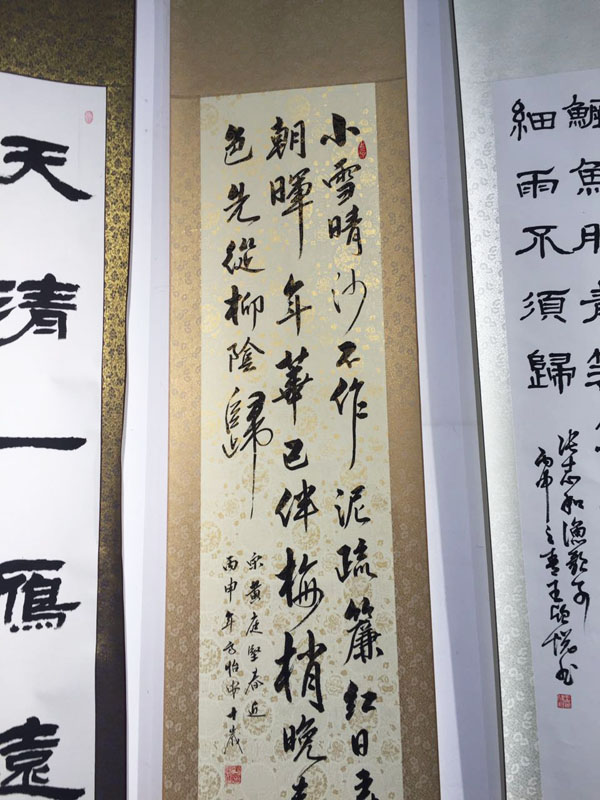 鱖魚肥青箬
細雨不須歸
張志和漁歌子
丙申之春王
小雪晴沙不作泥疏簾紅日弄
朝暉年華已伴梅梢晚春
色先從柳陰歸
宋黃庭堅春近
丙申年方怡 十歲
天清一雁遠